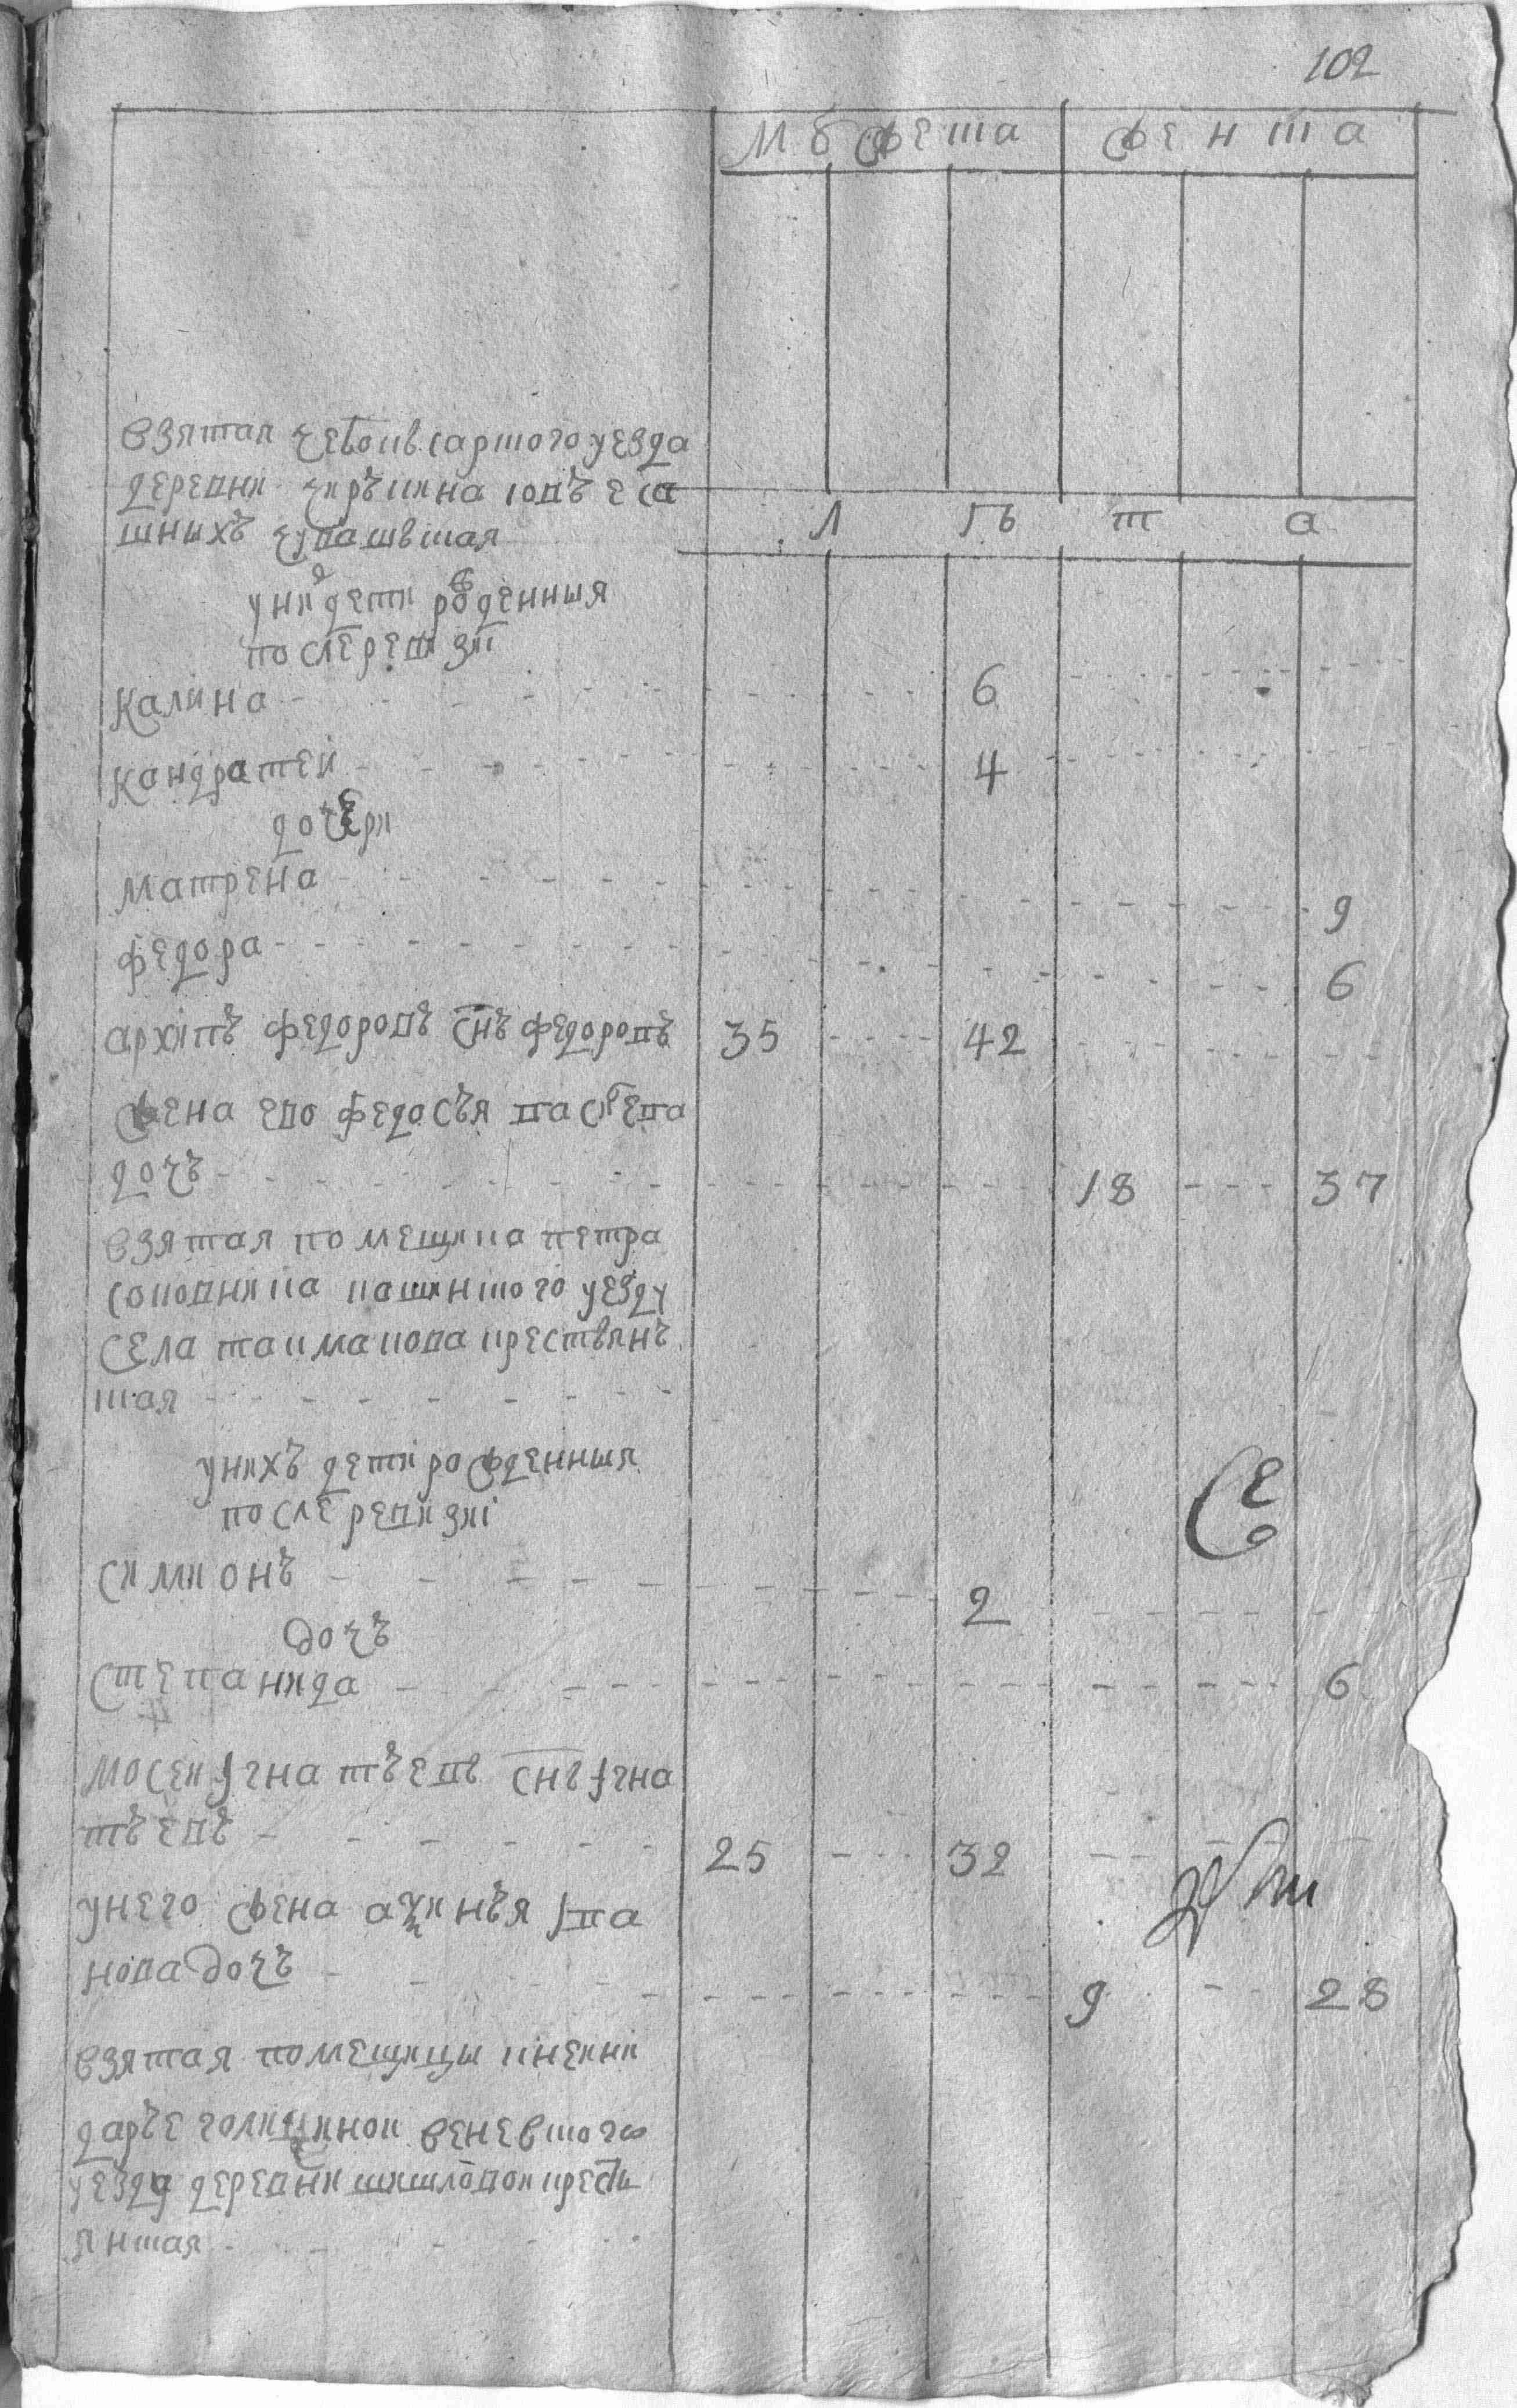 102
мужеска женска
взятая чебоксарского уезда
деревни киръкина ясашныхъ чювашская
лета
у них дети рожденныя
после ревизии
калина 6
кандратеи 4
дочери
матрена 9
федора 6
архипъ федоровъ снъ федоровъ 35 42
жена ево федосья савельева
дочь 18 37
взятая помещика петра
соковнина кашинского уезду
села таимакова крестьянъ
ская
у нихъ дети рожденныя
после ревизиі
симионъ 2
дочь
степанида 6
мосеи игна тьевъ снъ игна
тьевъ 25 32
у него жена аксинья іва
нова дочь 9 28
взятая помещицы кнегини
дарье голицинои веневского
уезда деревни шишловои кресть
янская